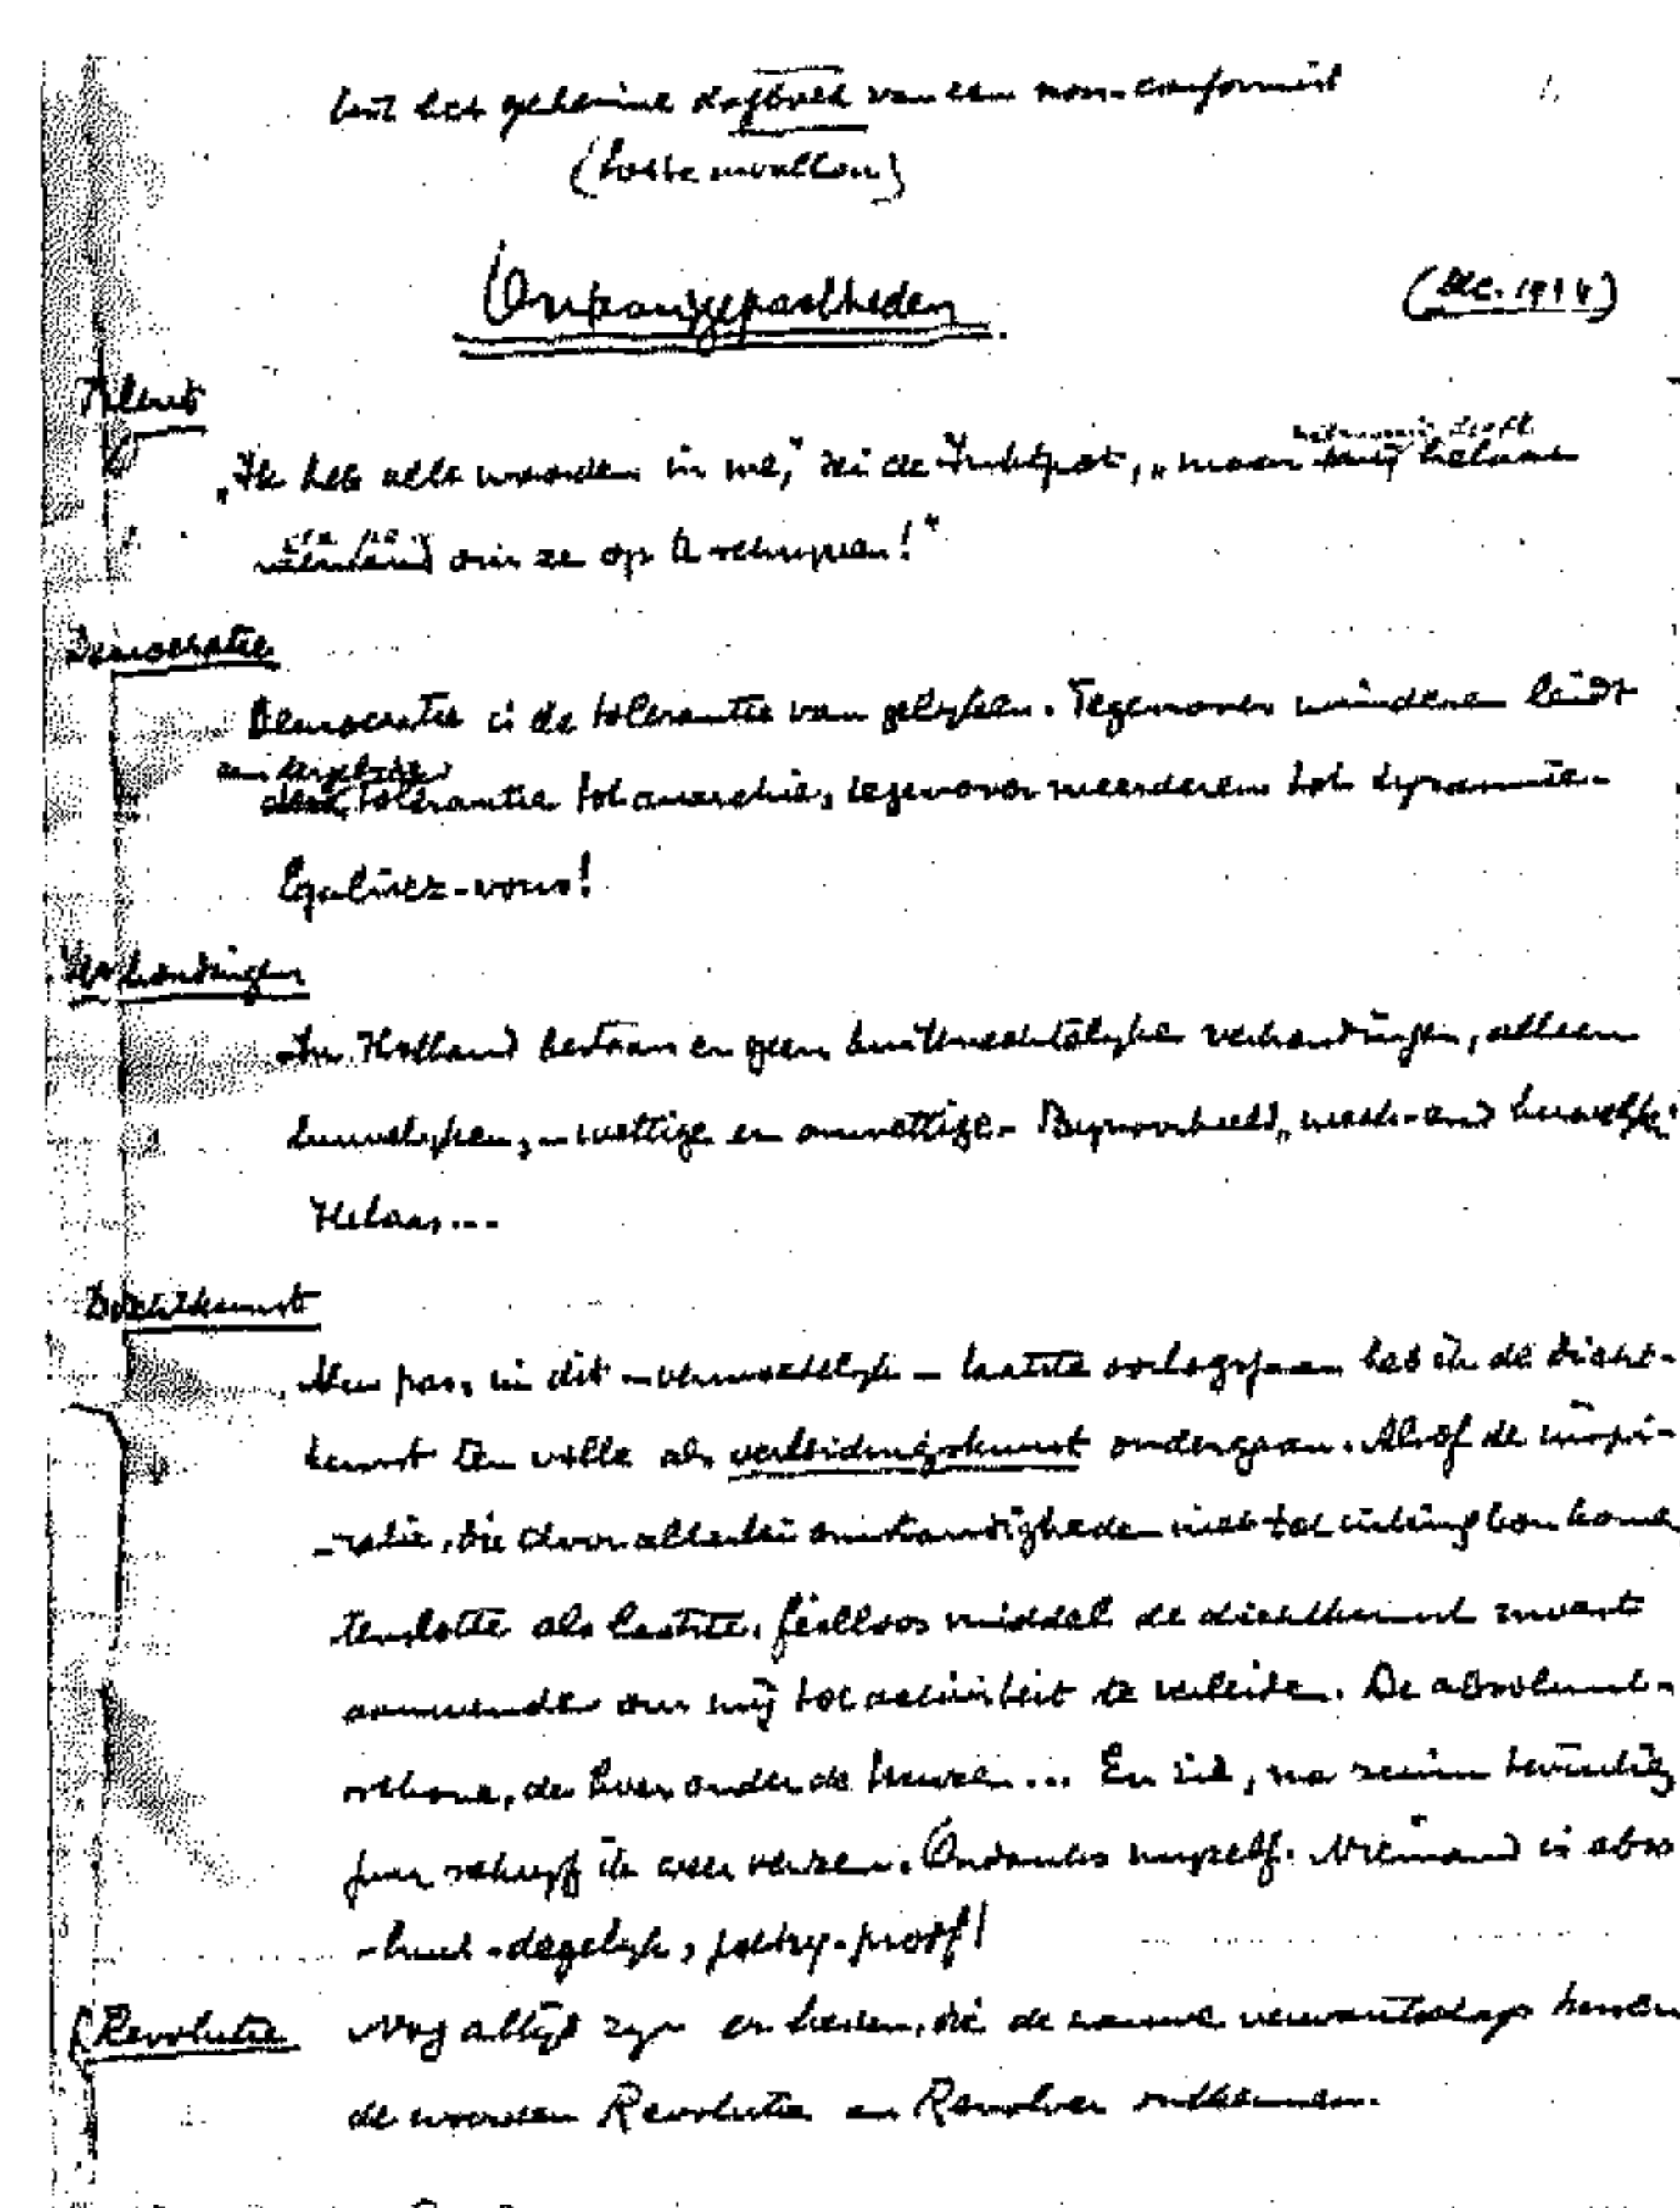 Uit het geheime dagboek van een non-conformist 1.
(Losse invallen)
Onaangepastheden. (Dec. 1944)
Talent
„Ik heb alle woorden in me," zei de Inktpot, „maar helaas
om ze op te schrijven!"
Democratie
Democratie is de tolerantie van gelijken. Tegenover minderen leidt
een dergelijke
deze tolerantie tot anarchie, tegenover meerderen tot tyrannie.
Egalisez-vous!
Verhoudingen
In Holland bestaan er geen buitenechtelijke verhoudingen, alleen
huwelijken, – wettige en onwettige. Bijvoorbeeld „week-end huwelijk."
Helaas...
Dichtkunst
Nu pas, in dit – vermoedelijk – laatste oorlogsjaar heb ik de dicht-
kunst ten volle als verleidingskunst ondergaan. Alsof de inspi-
-ratie, die door allerlei omstandigheden niet tot uiting kon komen
tenslotte als laatste, feilloos middel de dichtkunst
aanwendde om mij tot activiteit te verleiden. De absoluut-
schone, de hoer onder de muzen... En zie, na ruim twintig
jaar schrijf ik weer verzen. Ondanks mijzelf. Niemand is abso
-luut-degelijk, poetry-proof!
Revolutie Nog altijd zijn er lieden, die de nauwe verwantschap tussen
de woorden Revolutie en Revolver ontkennen.